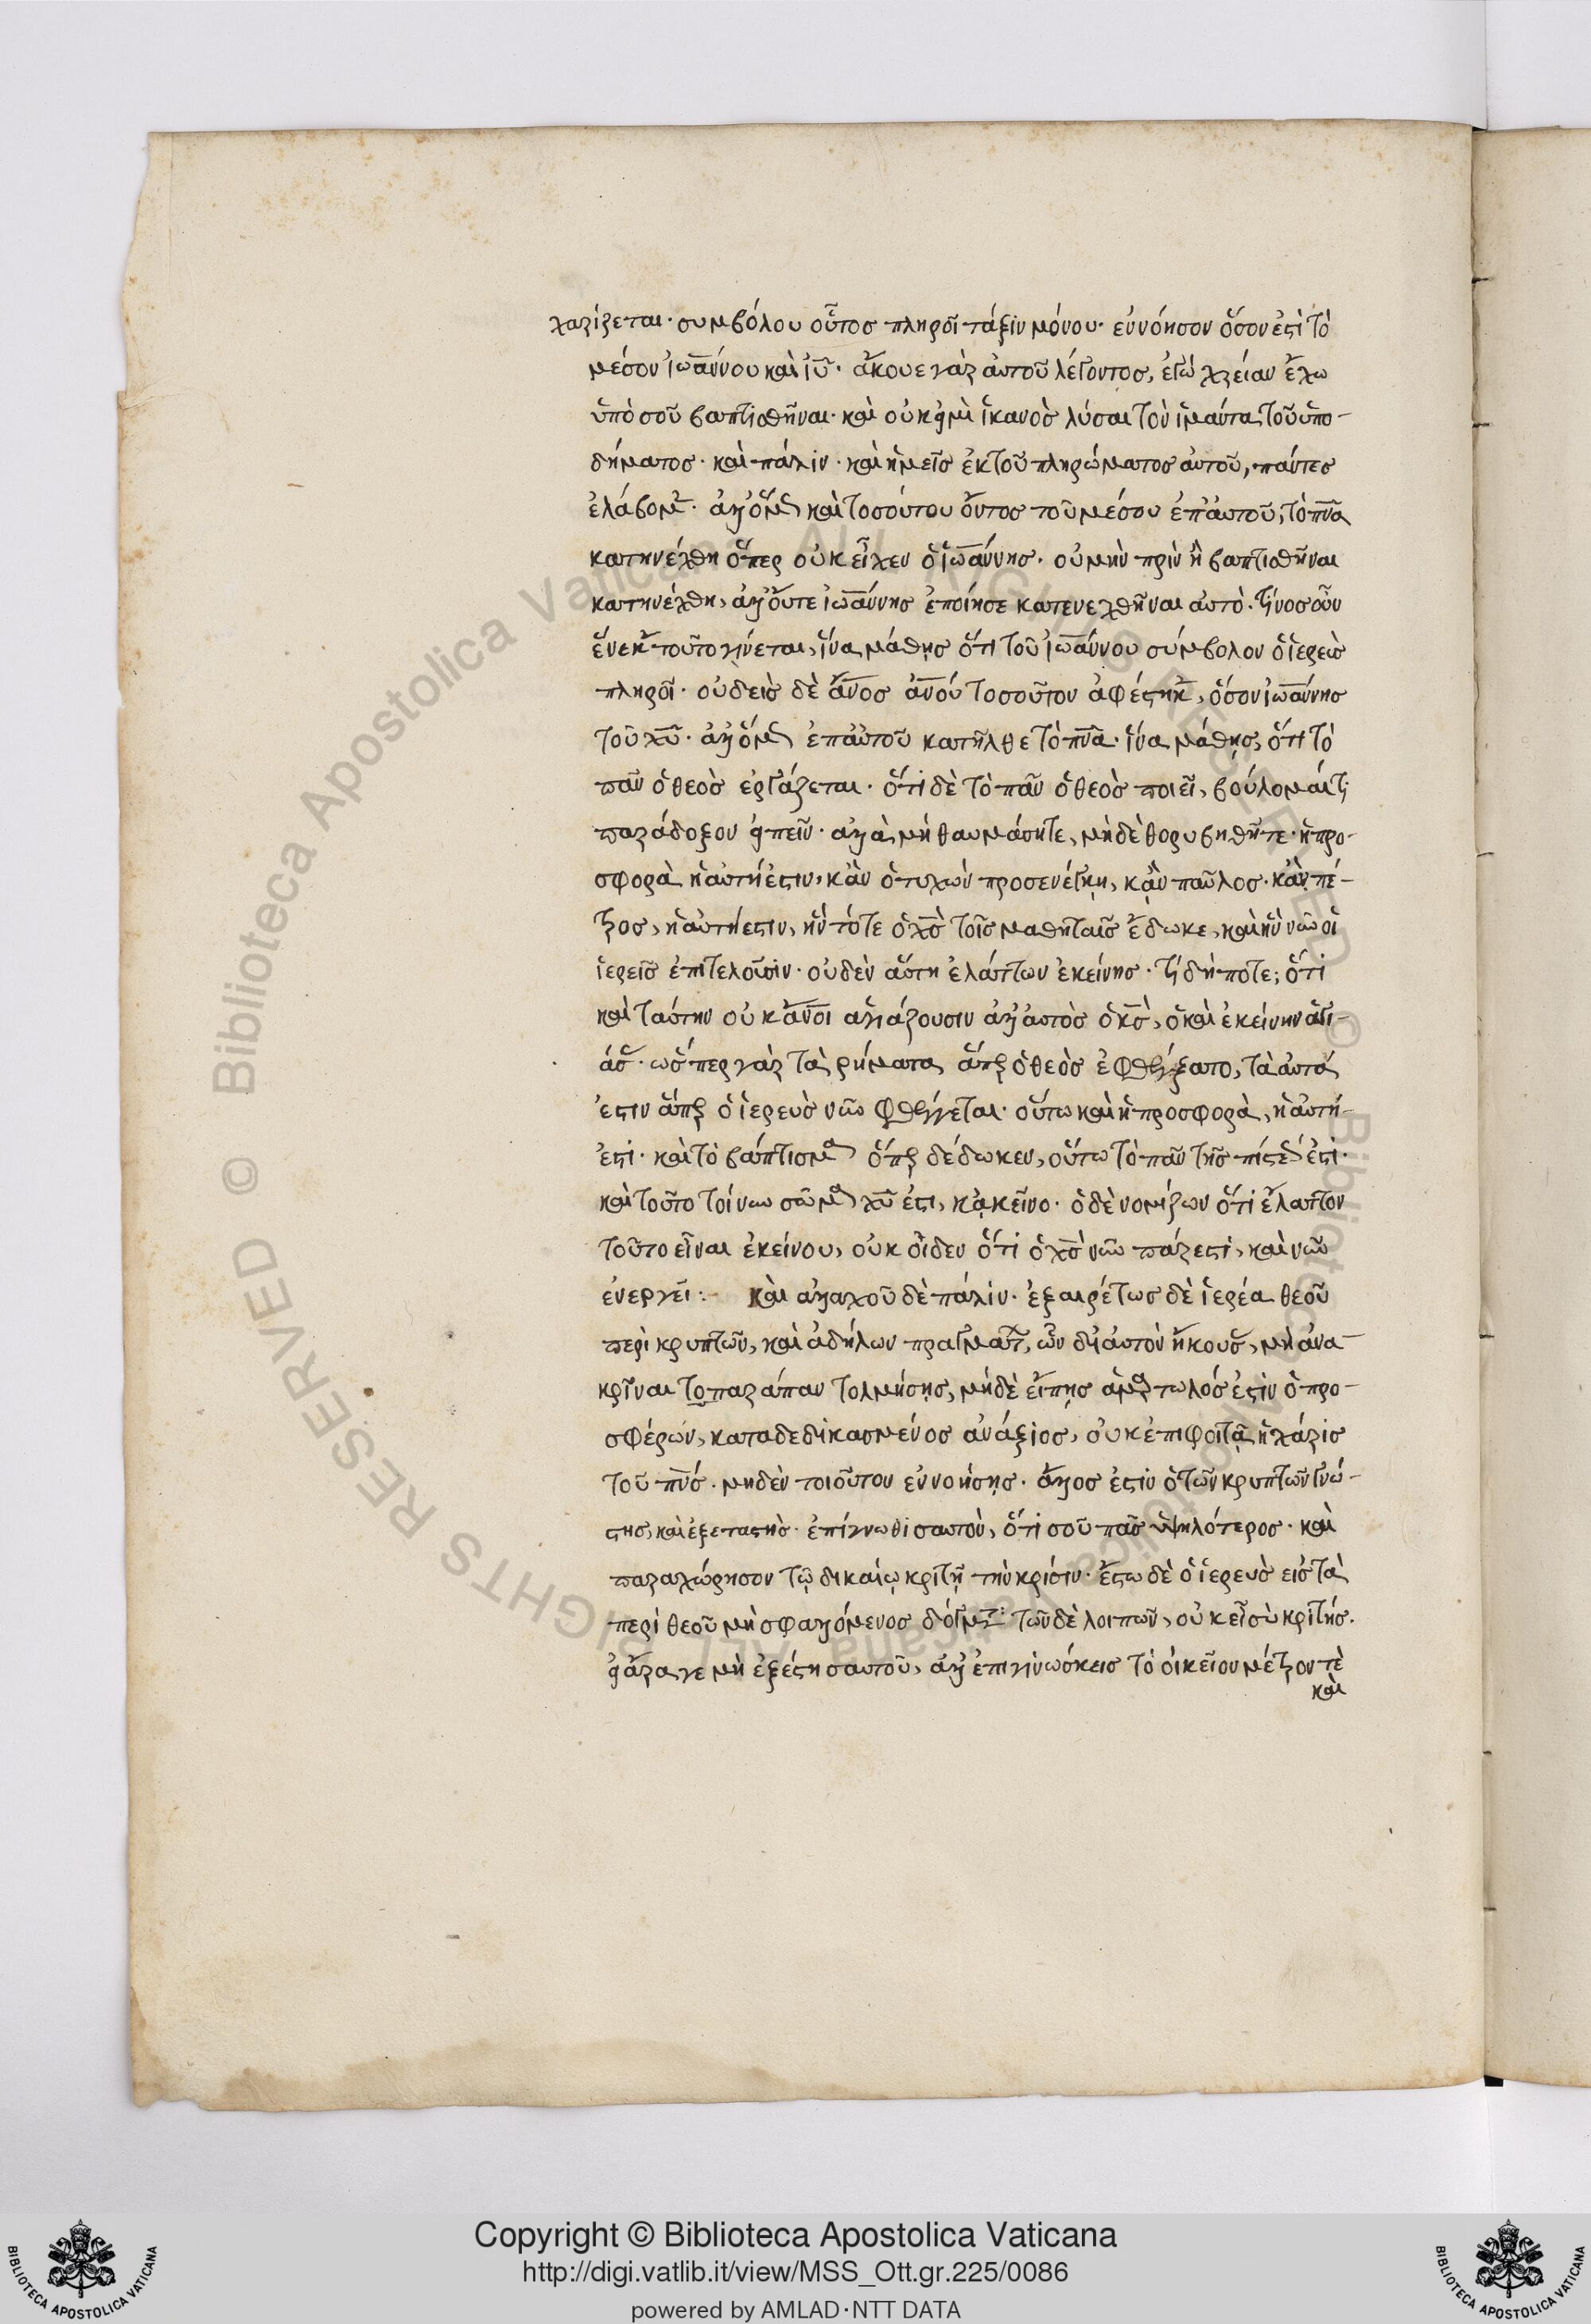 χαρίζεται· συμβόλου οὗτος πληροῖ τάξιν μόνου· εὐνόησον ὅσον ἐστὶ τὸ
μέσον ἰω̅άννου καὶ ἰ̅υ̅· ἄκουε γὰρ αὐτοῦ λέγοντος, ἐγὼ χρείαν ἔχω
ὑπὸ σοῦ βαπτισθῆναι· καὶ οὐκ εἰμὶ ἱκανὸς λύσαι τὸν ἱμάντα τοῦ ὑπο-
δήματος· καὶ πάλιν· καὶ ἡμεῖς ἐκ τοῦ πληρώματος αὐτοῦ, πάντες
ἐλάβομεν· ἀλλ' ὅμως καὶ τοσούτου ὄντος τοῦ μέσου ἐπ' αὐτοῦ, τὸ π̅ν̅α̅
κατηνέχθη ὅπερ οὐκ εἶχεν ὁ ἰω̅άννης· οὐ μὴν πρὶν ἢ βαπτισθῆναι
κατηνέχθη, ἀλλ' οὔτε ἰω̅άννης ἐποίησε κατενεχθῆναι αὐτό· τίνος οὖν
ἕνεκεν τοῦτο γίνεται, ἵνα μάθῃς ὅτι τοῦ ἰω̅άννου σύμβολον ὁ ἱερεὺς
πληροῖ· οὐδεὶς δὲ ἄ̅ν̅ο̅ς ἀ̅ν̅ο̅ύ τοσοῦτον ἀφέστηκεν, ὅσον ἰω̅άννης
τοῦ χ̅υ̅· ἀλλ' ὅμως ἐπ' αὐτοῦ κατῆλθε τὸ π̅ν̅α̅· ἵνα μάθῃς, ὅτι τὸ
πᾶν ὁ θεὸς ἐργάζεται· ὅτι δὲ τὸ πᾶν ὁ θεὸς ποιεῖ, βούλομαί τι
παράδοξον εἰπεῖν· ἀλλὰ μὴ θαυμάσητε, μηδὲ θορυβηθῆτε· ἡ προ-
σφορὰ ἡ αὐτή ἐστιν, κἂν ὁ τυχὼν προσενέγκῃ, κἂν παῦλος· κἂν πέ-
τρος, ἡ αὐτή ἐστιν, ἣν τότε ὁ χ̅ς̅ τοῖς μαθηταῖς ἔδωκε, καὶ ἣν νῦν οἱ
ἱερεῖς ἐπιτελοῦσιν· οὐδὲν αὕτη ἐλάττων ἐκείνης· τί δήποτε; ὅτι
καὶ ταύτην οὐκ ἄ̅ν̅ο̅ι ἁγιάζουσιν ἀλλ' αὐτὸς ὁ κ̅ς̅, ὁ καὶ ἐκείνην ἁγι-
άσας· ὥσπερ γὰρ τὰ ῥήματα ἅπερ ὁ θεὸς ἐφθέγξατο, τὰ αὐτά
ἐστιν ἅπερ ὁ ἱερεὺς νῦν φθέγγεται· οὕτω καὶ ἡ προσφορὰ, ἡ αὐτή
ἐστι· καὶ τὸ βάπτισμα ὅπερ δέδωκεν, οὕτω τὸ πᾶν τῆς πίστεώς ἐστι·
καὶ τοῦτο τοίνυν σῶμα χ̅υ̅ ἐστι, κἀκεῖνο· ὁ δὲ νομίζων ὅτι ἔλαττον
τοῦτο εἶναι ἐκείνου, οὐκ οἶδεν ὅτι ὁ χ̅ς̅ νῦν πάρεστι, καὶ νῦν
ἐνεργεῖ:- καὶ ἀλλαχοῦ δὲ πάλιν· ἐξαιρέτως δὲ ἱερέα θεοῦ
περὶ κρυπτῶν, καὶ ἀδήλων πραγμάτων, ὧν δι' αὐτὸν ἤκουσας, μὴ ἀνα-
κρῖναι τοπαράπαν τολμήσῃς, μηδὲ εἴπῃς ἁμαρτωλός ἐστιν ὁ προ-
σφέρων, καταδεδικασμένος ἀνάξιος, οὐκ ἐπιφοιτᾷ ἡ χάρις
τοῦ π̅ν̅ς̅· μηδὲν τοιοῦτον ἐννοήσῃς· ἄλλος ἐστὶν ὁ τῶν κρυπτῶν γνώ-
στης, καὶ ἐξεταστής· ἐπίγνωθι σαυτὸν, ὅτι σοῦ πᾶς ὑψηλότερος· καὶ
παραχώρησον τῷ δικαίῳ κριτῇ τὴν κρίσιν· ἔστω δὲ ὁ ἱερεὺς εἰς τὰ
περὶ θεοῦ μὴ σφαλλόμενος δόγματα· τῶν δὲ λοιπῶν, οὐκ εἶ σὺ κριτής.
εἰ ἄρα γε μὴ ἐξέστη σαυτοῦ, ἀλλ' ἐπιγινώσκεις τὸ οἰκεῖον μέτρον τὲ
καὶ
Copyright © Biblioteca Apostolica Vaticana
http://digi.vatlib.it/view/MSS_Ott.gr.225/0086
powered by AMLAD·NTT DATA